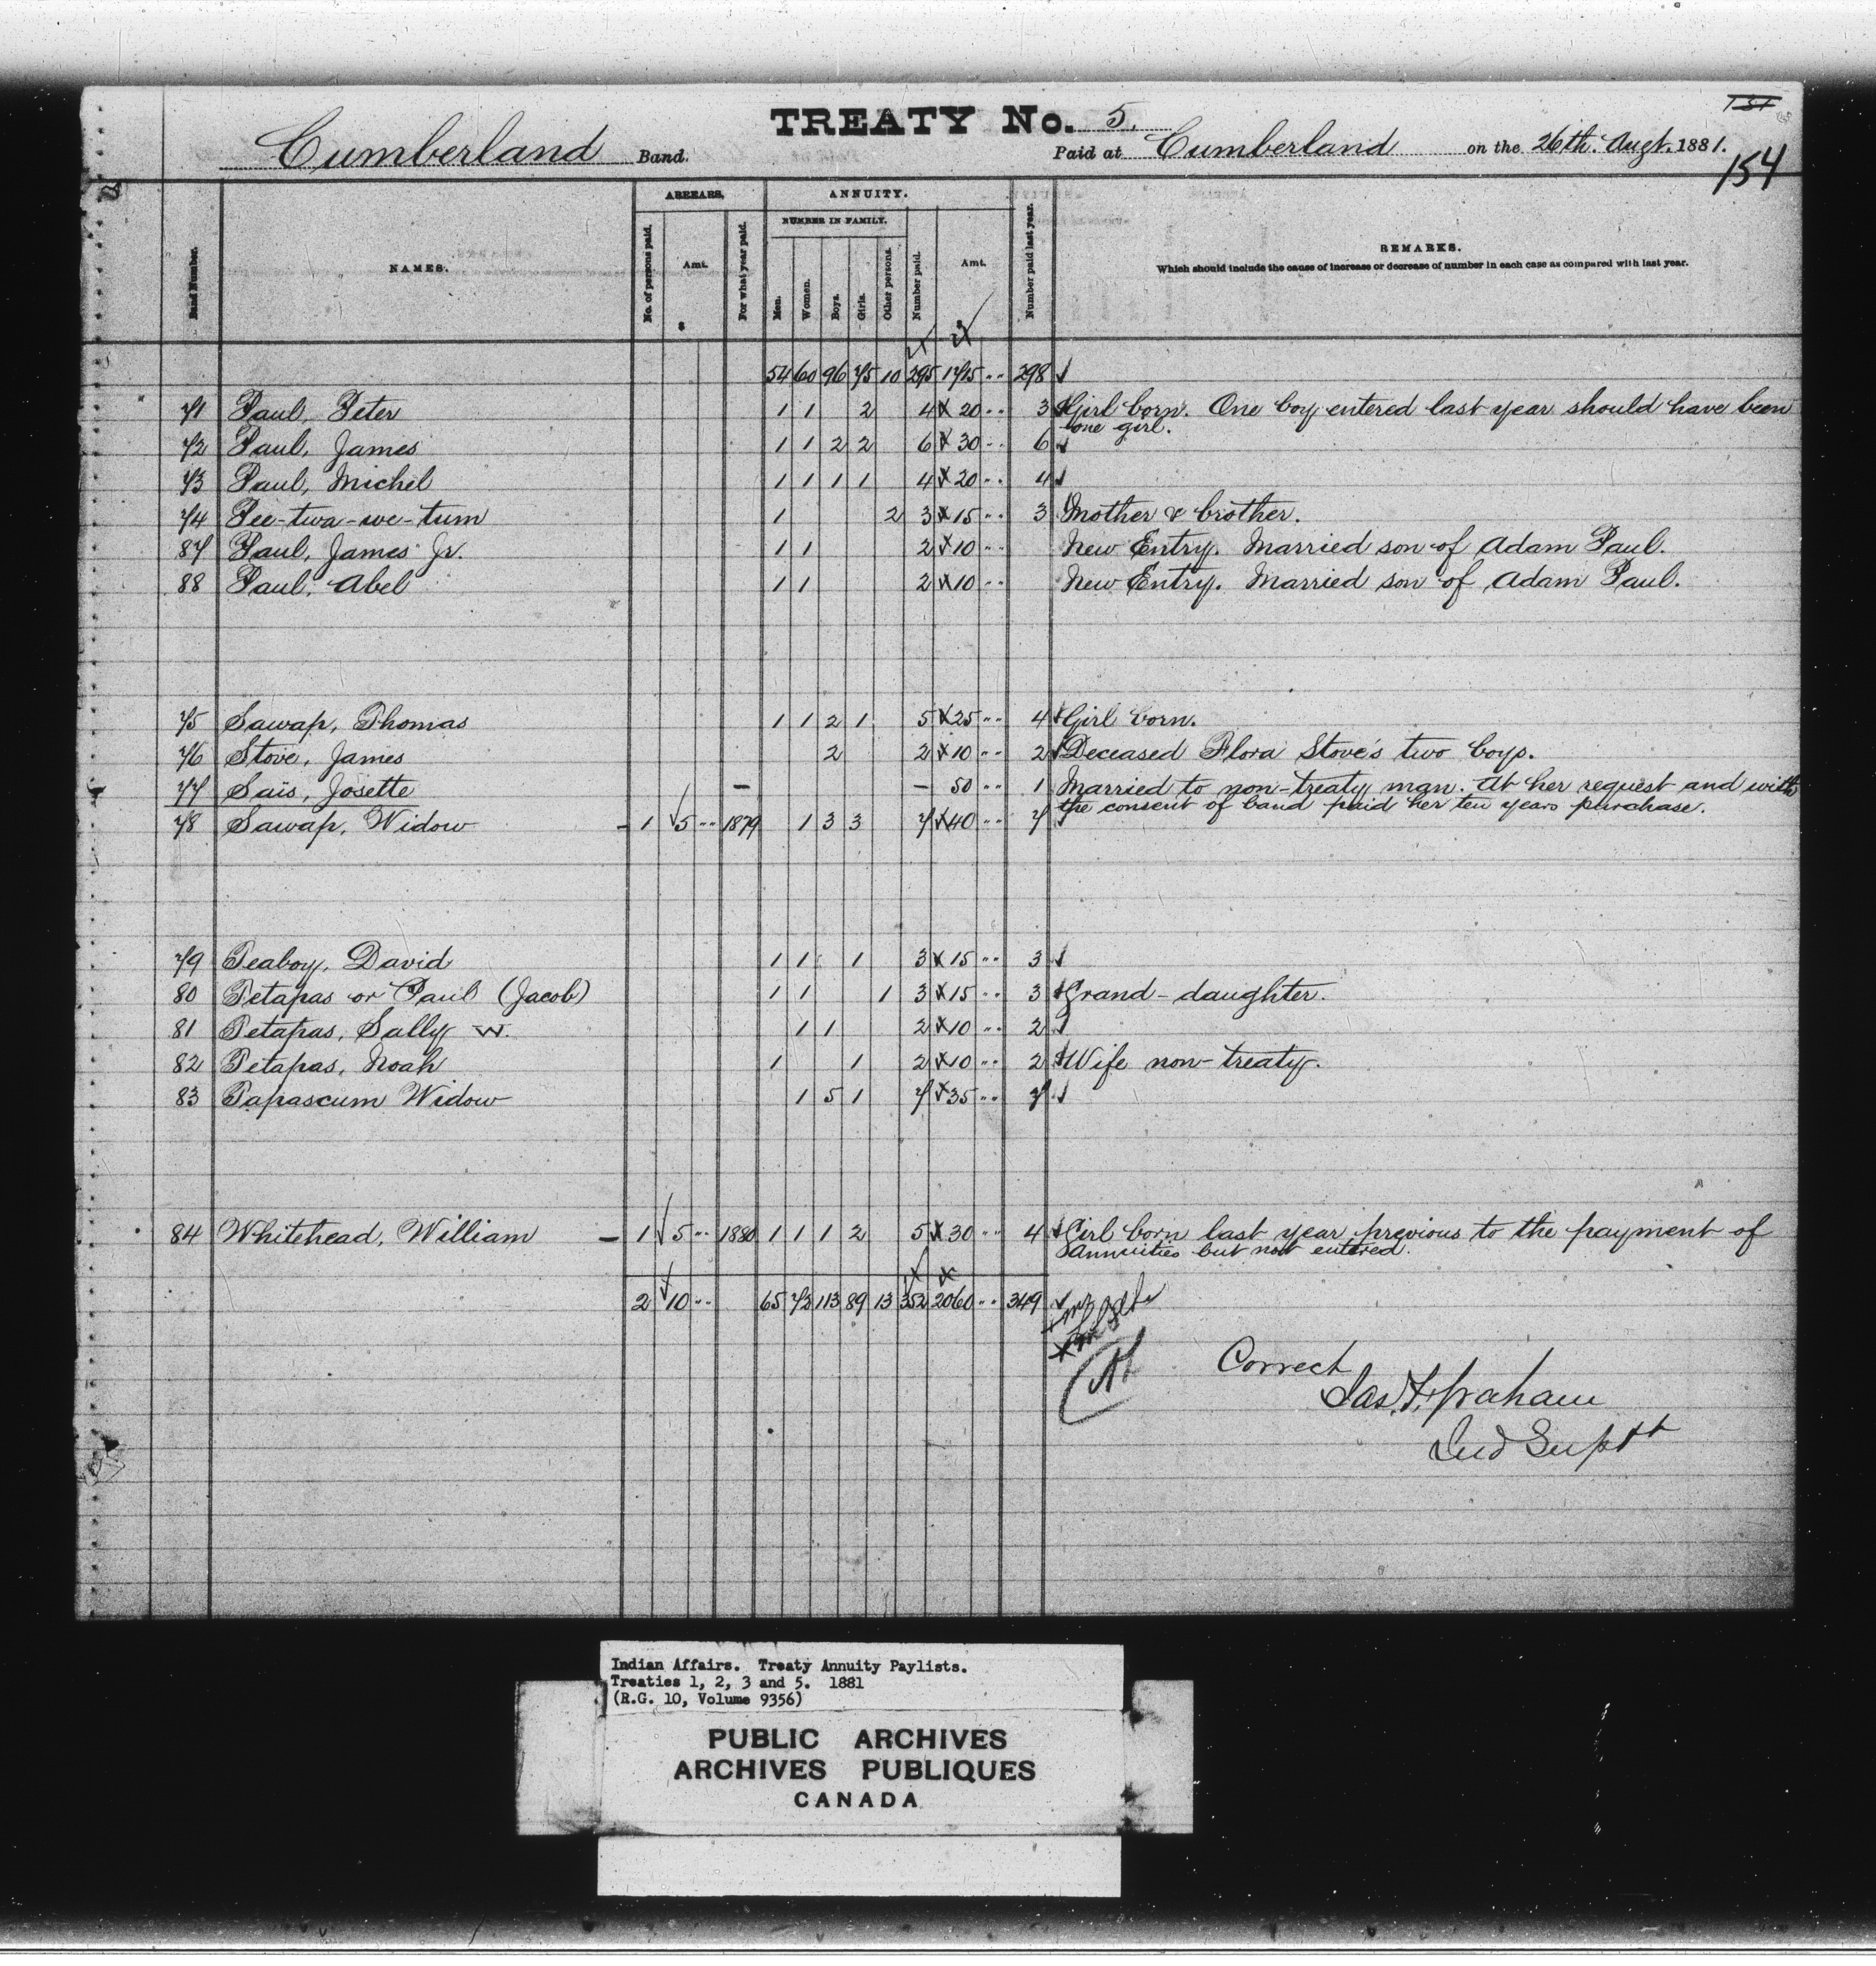 TREATY No. 5.
Cumberland Band. Paid at Cumberland on the 26th. Augt. 1881.
154
Band Number. NAMES. ARREARS. ANNUITY. Number paid last year. REMARKS.
Which should include the cause of increase or decrease of number in each case as compared with last year.
No. of persons paid. Amt. $ For what year paid. NUMBER IN FAMILY. Men. Women. Boys. Girls. Other persons. Number paid. Amt. $
54 60 96 75 10 295 1715 298
71 Paul, Peter 1 1 2 4 20 3 Girl born. One boy entered last year should have been
one girl.
72 Paul, James 1 1 2 2 6 30 6
73 Paul, Michel 1 1 1 1 4 20 4
74 Pee-twa-we-tum 1 2 3 15 3 Mother & brother.
87 Paul, James Jr. 1 1 2 10 New Entry. Married son of Adam Paul.
88 Paul, Abel 1 1 2 10 New Entry. Married son of Adam Paul.
75 Sawap, Thomas 1 1 2 1 5 25 4 Girl born.
76 Stove, James 2 2 10 2 Deceased Flora Stove's two boys.
77 Saïs, Josette — — 50 1 Married to non-treaty man. At her request and with
the consent of band paid her ten years purchase.
78 Sawap, Widow – 1 5 1879 1 3 3 7 40 7
79 Teaboy, David 1 1 1 3 15 3
80 Tetapas or Paul (Jacob) 1 1 1 3 15 3 Grand-daughter.
81 Tetapas, Sally W. 1 1 2 10 2
82 Tetapas, Noah 1 1 2 10 2 Wife non-treaty.
83 Tapascum Widow 1 5 1 7 35 7
84 Whitehead, William – 1 5 1880 1 1 1 2 5 30 4 Girl born last year previous to the payment of
annuities but not entered.
2 10 65 72 113 89 13 352 2060 349
Correct
Jas. F. Graham
Ind Supt
Indian Affairs. Treaty Annuity Paylists.
Treaties 1, 2, 3 and 5. 1881
(R.G. 10, Volume 9356)
PUBLIC ARCHIVES
ARCHIVES PUBLIQUES
CANADA